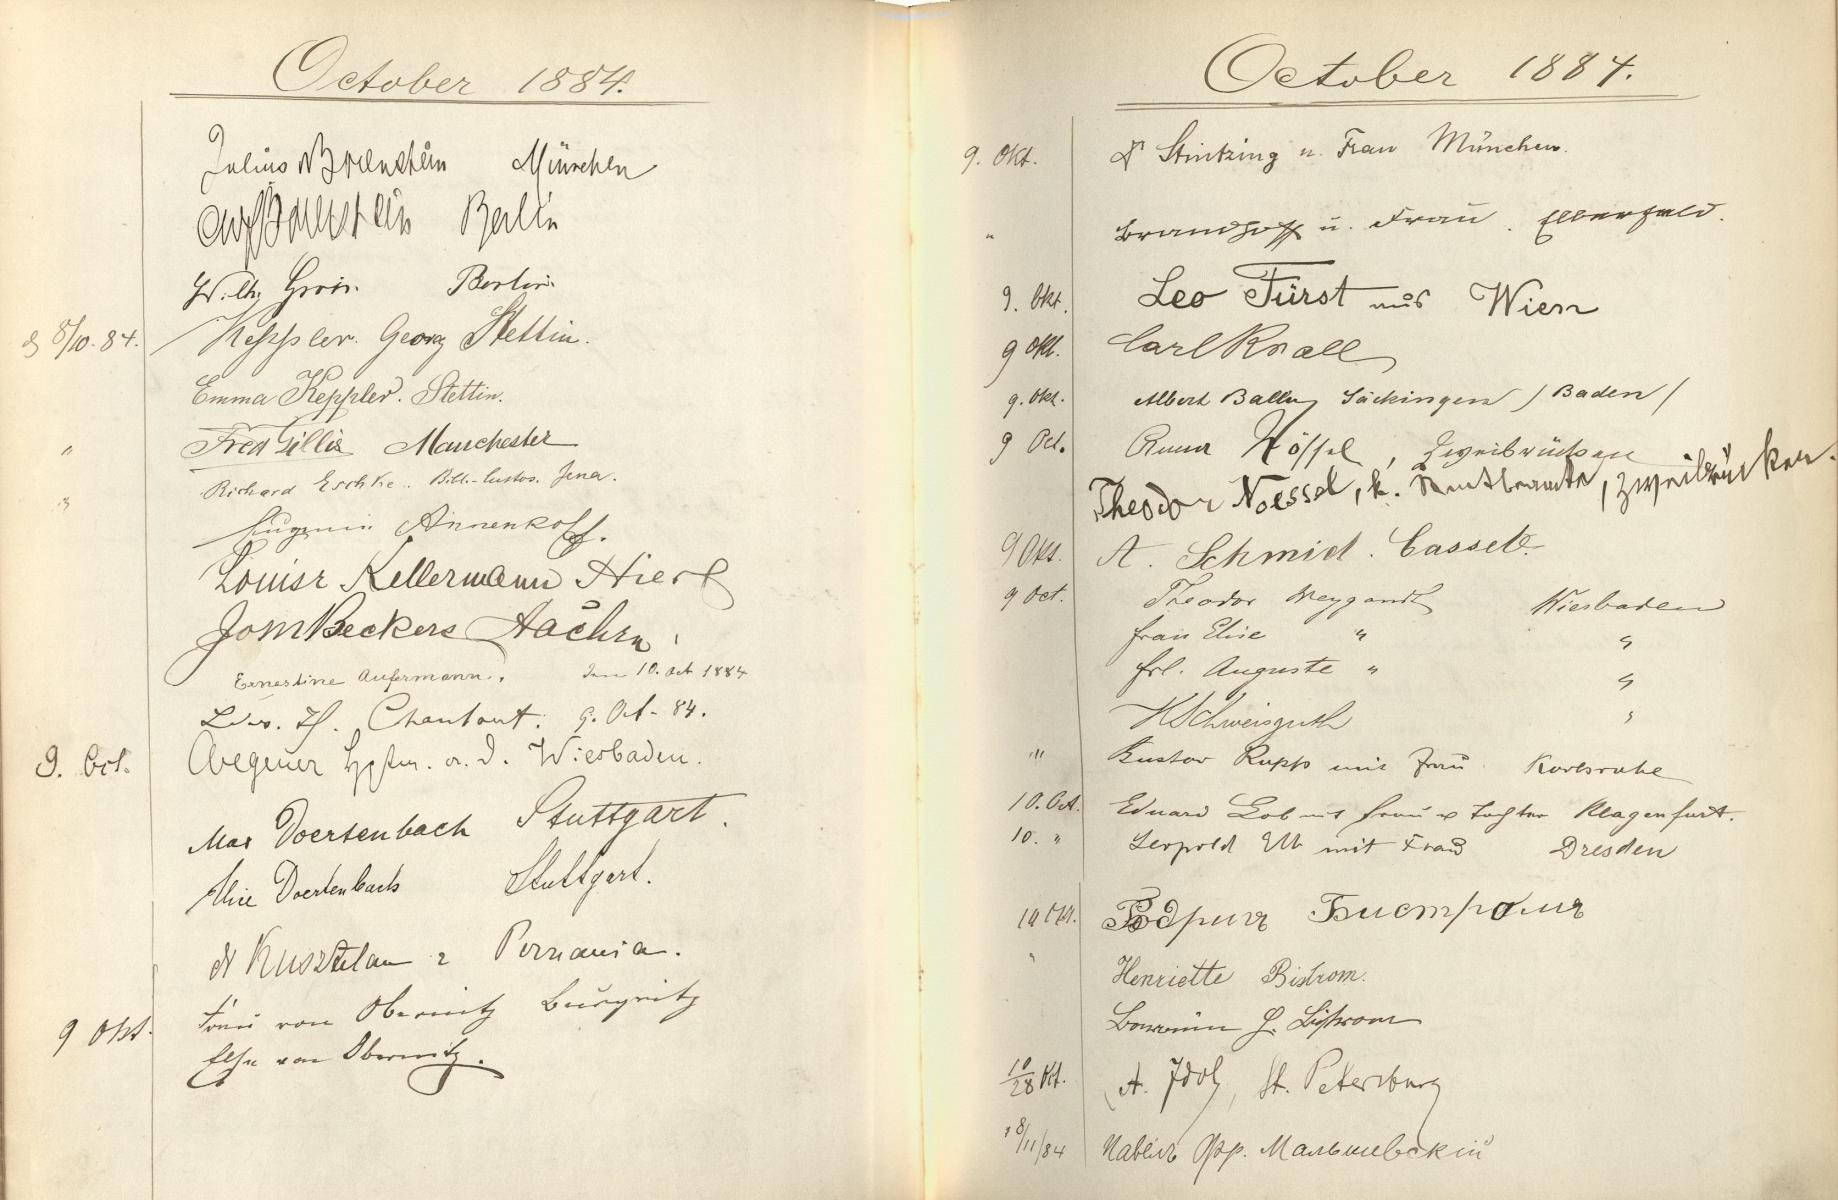 October 1884.
Julius Bernstein München
Berlin
Wilh. Berlin.
8/10. 84. Keppler. Georg Stettin.
Emma Keppler. Stettin.
" Fred Gillis Manchester
" Richard Eschke. Bibl.-Custos. Jena.
Eugenie Annenkoff.
Louise Kellermann Hierl
Jos M Beckers Aachen
Ernestine Aufermann. den 10. Oct 1884
H. Chantout. 9. Oct. 84.
9. Oct. Wegener a. D. Wiesbaden.
Max Doertenbach Stuttgart.
Alice Doertenbach Stuttgart.
Dr Kusztelan z Poznania.
9 Okt. Frau von Obernitz
Else von Obernitz.
October 1884.
9. Okt. Dr Stintzing u. Frau München.
" Brandhoff u. Frau. Elberfeld.
9. Okt. Leo Fürst aus Wien
9 Okt. Carl Knoll
9. Okt. Albert Bally Säckingen / Baden /
9 Oct. Nössel, Zweibrücken
Theodor Noessel, k. Rentbeamte, Zweibrücken.
9 Okt. A. Schmidt. Cassel.
9 Oct. Theodor Weygandt Wiesbaden
Frau Elise " "
Frl. Auguste " "
H Schweisguth "
" Gustav Rupp mit Frau Karlsruhe
10. Oct. Eduard mit Frau & Tochter Klagenfurt.
10. " Leopold Elb mit Frau Dresden
10 Okt. Родригъ Бистромъ
" Henriette Bistrom.
Baronin Bistrom
10/28 Okt. A. Jdol, St. Petersburg
8/11/84 Павелъ Фр. Малышевскій